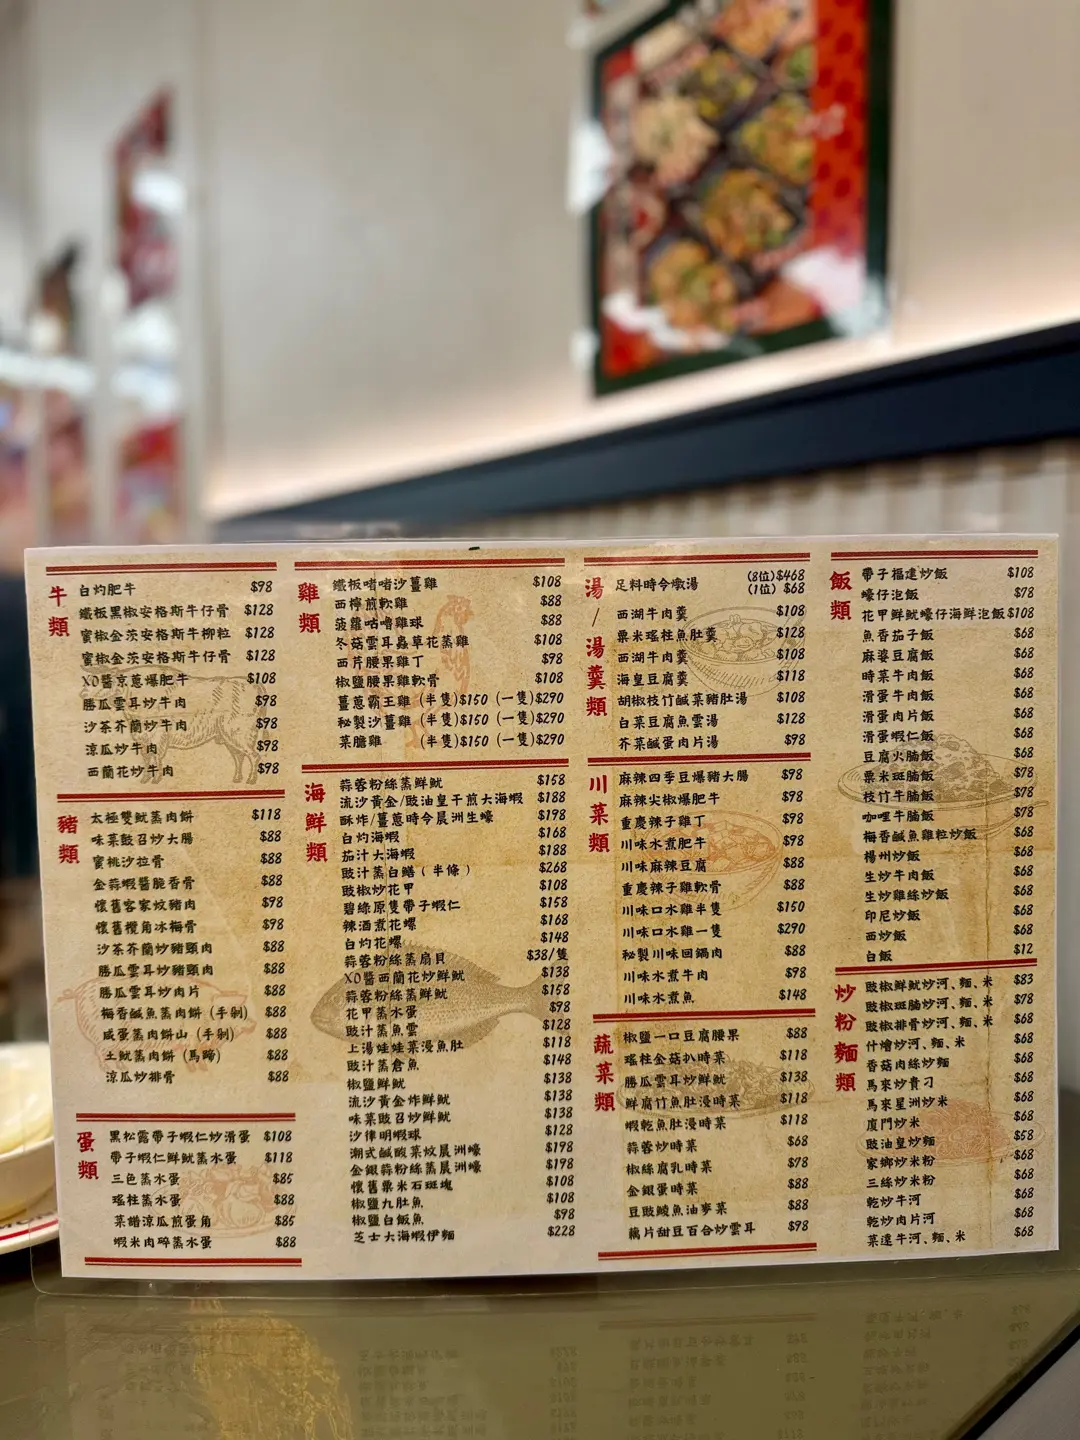 牛類
白灼肥牛 $98
鐵板黑椒安格斯牛仔骨 $128
蜜椒金茨安格斯牛柳粒 $128
蜜椒金茨安格斯牛仔骨 $128
XO醬京蔥爆肥牛 $108
勝瓜雲耳炒牛肉 $98
沙茶芥蘭炒牛肉 $98
涼瓜炒牛肉 $98
西蘭花炒牛肉 $98
豬類
太極雙魷蒸肉餅 $118
味菜鼓召炒大腸 $88
蜜桃沙拉骨 $88
金蒜蝦醬脆香骨 $88
懷舊客家炆豬肉 $98
懷舊欖角冰梅骨 $98
沙茶芥蘭炒豬頸肉 $88
勝瓜雲耳炒豬頸肉 $88
勝瓜雲耳炒肉片 $88
梅香鹹魚蒸肉餅(手剁) $88
咸蛋蒸肉餅山(手剁) $88
土魷蒸肉餅(馬蹄) $88
涼瓜炒排骨 $88
蛋類
黑松露帶子蝦仁炒滑蛋 $108
帶子蝦仁鮮魷蒸水蛋 $118
三色蒸水蛋 $85
瑤柱蒸水蛋 $88
菜甫涼瓜煎蛋角 $85
蝦米肉碎蒸水蛋 $88
雞類
鐵板啫啫沙薑雞 $108
西檸煎軟雞 $88
菠蘿咕嚕雞球 $88
冬菇雲耳蟲草花蒸雞 $108
西芹腰果雞丁 $98
椒鹽腰果雞軟骨 $108
薑蔥霸王雞 (半隻)$150 (一隻)$290
秘製沙薑雞 (半隻)$150 (一隻)$290
菜膽雞 (半隻)$150 (一隻)$290
海鮮類
蒜蓉粉絲蒸鮮魷 $158
流沙黃金/豉油皇干煎大海蝦 $188
酥炸/薑蔥時令晨洲生蠔 $198
白灼海蝦 $168
茄汁大海蝦 $188
豉汁蒸白鱔(半條) $268
豉椒炒花甲 $108
碧綠原隻帶子蝦仁 $158
辣酒煮花螺 $148
白灼花螺 $148
蒜蓉粉絲蒸扇貝 $38/隻
XO醬西蘭花炒鮮魷 $138
蒜蓉粉絲蒸鮮魷 $158
花甲蒸水蛋 $98
豉汁蒸魚雲 $128
上湯娃娃菜浸魚肚 $118
豉汁蒸倉魚 $148
椒鹽鮮魷 $138
流沙黃金炸鮮魷 $138
味菜豉召炒鮮魷 $138
沙律明蝦球 $128
潮式鹹酸菜炆晨洲蠔 $198
金銀蒜粉絲蒸晨洲蠔 $198
懷舊粟米石斑塊 $108
椒鹽九肚魚 $108
椒鹽白飯魚 $98
芝士大海蝦伊麵 $228
湯/湯羹類
足料時令燉湯 (8位)$468
(1位) $68
西湖牛肉羹 $108
粟米瑤柱魚肚羹 $128
西湖牛肉羹 $108
海皇豆腐羹 $118
胡椒枝竹鹹菜豬肚湯 $108
白菜豆腐魚雲湯 $128
芥菜鹹蛋肉片湯 $98
川菜類
麻辣四季豆爆豬大腸 $98
麻辣尖椒爆肥牛 $98
重慶辣子雞丁 $98
川味水煮肥牛 $98
川味麻辣豆腐 $88
重慶辣子雞軟骨 $88
川味口水雞半隻 $150
川味口水雞一隻 $290
秘製川味回鍋肉 $88
川味水煮牛肉 $98
川味水煮魚 $148
蔬菜類
椒鹽一口豆腐腰果 $88
瑤柱金菇扒時菜 $118
勝瓜雲耳炒鮮魷 $138
鮮腐竹魚肚浸時菜 $118
蝦乾魚肚浸時菜 $118
蒜蓉炒時菜 $68
椒絲腐乳時菜 $78
金銀蛋時菜 $88
豆豉鯪魚油麥菜 $88
藕片甜豆百合炒雲耳 $98
飯類
帶子福建炒飯 $108
蠔仔泡飯 $78
花甲鮮魷蠔仔海鮮泡飯 $108
魚香茄子飯 $68
麻婆豆腐飯 $68
時菜牛肉飯 $68
滑蛋牛肉飯 $68
滑蛋肉片飯 $68
滑蛋蝦仁飯 $68
豆腐火腩飯 $68
粟米斑腩飯 $68
枝竹牛腩飯 $78
咖哩牛腩飯 $78
梅香鹹魚雞粒炒飯 $68
楊州炒飯 $68
生炒牛肉飯 $68
生炒雞絲炒飯 $68
印尼炒飯 $68
西炒飯 $68
白飯 $12
炒粉麵類
豉椒鮮魷炒河、麵、米 $83
豉椒斑腩炒河、麵、米 $78
豉椒排骨炒河、麵、米 $68
什燴炒河、麵、米 $68
香菇肉絲炒麵 $68
馬來炒貴刁 $68
馬來星洲炒米 $68
廈門炒米 $68
豉油皇炒麵 $58
家鄉炒米粉 $68
三絲炒米粉 $68
乾炒牛河 $68
乾炒肉片河 $68
菜遠牛河、麵、米 $68